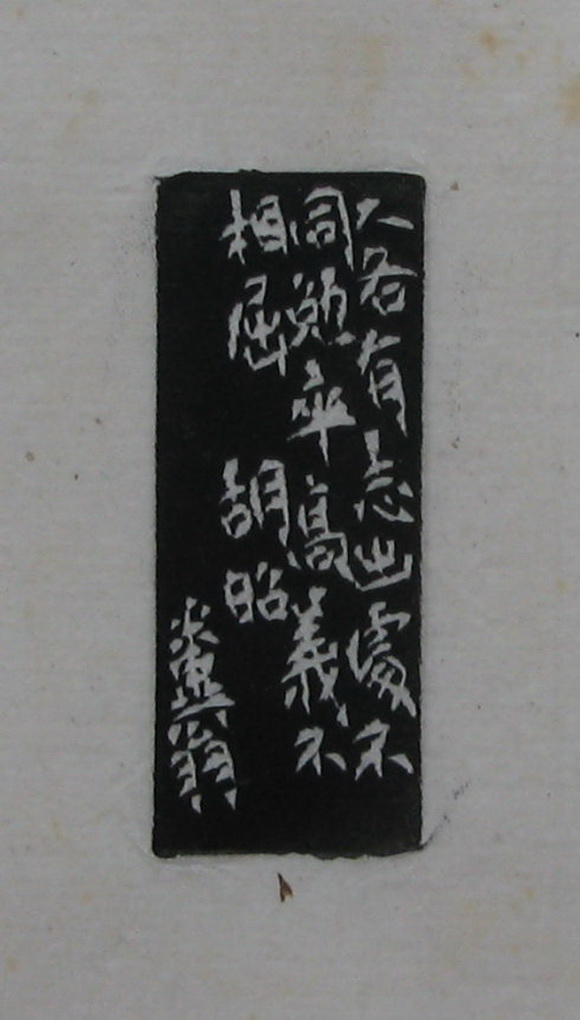 人各有志出處不
同勉卒高義不
相屈　胡昭
糞翁